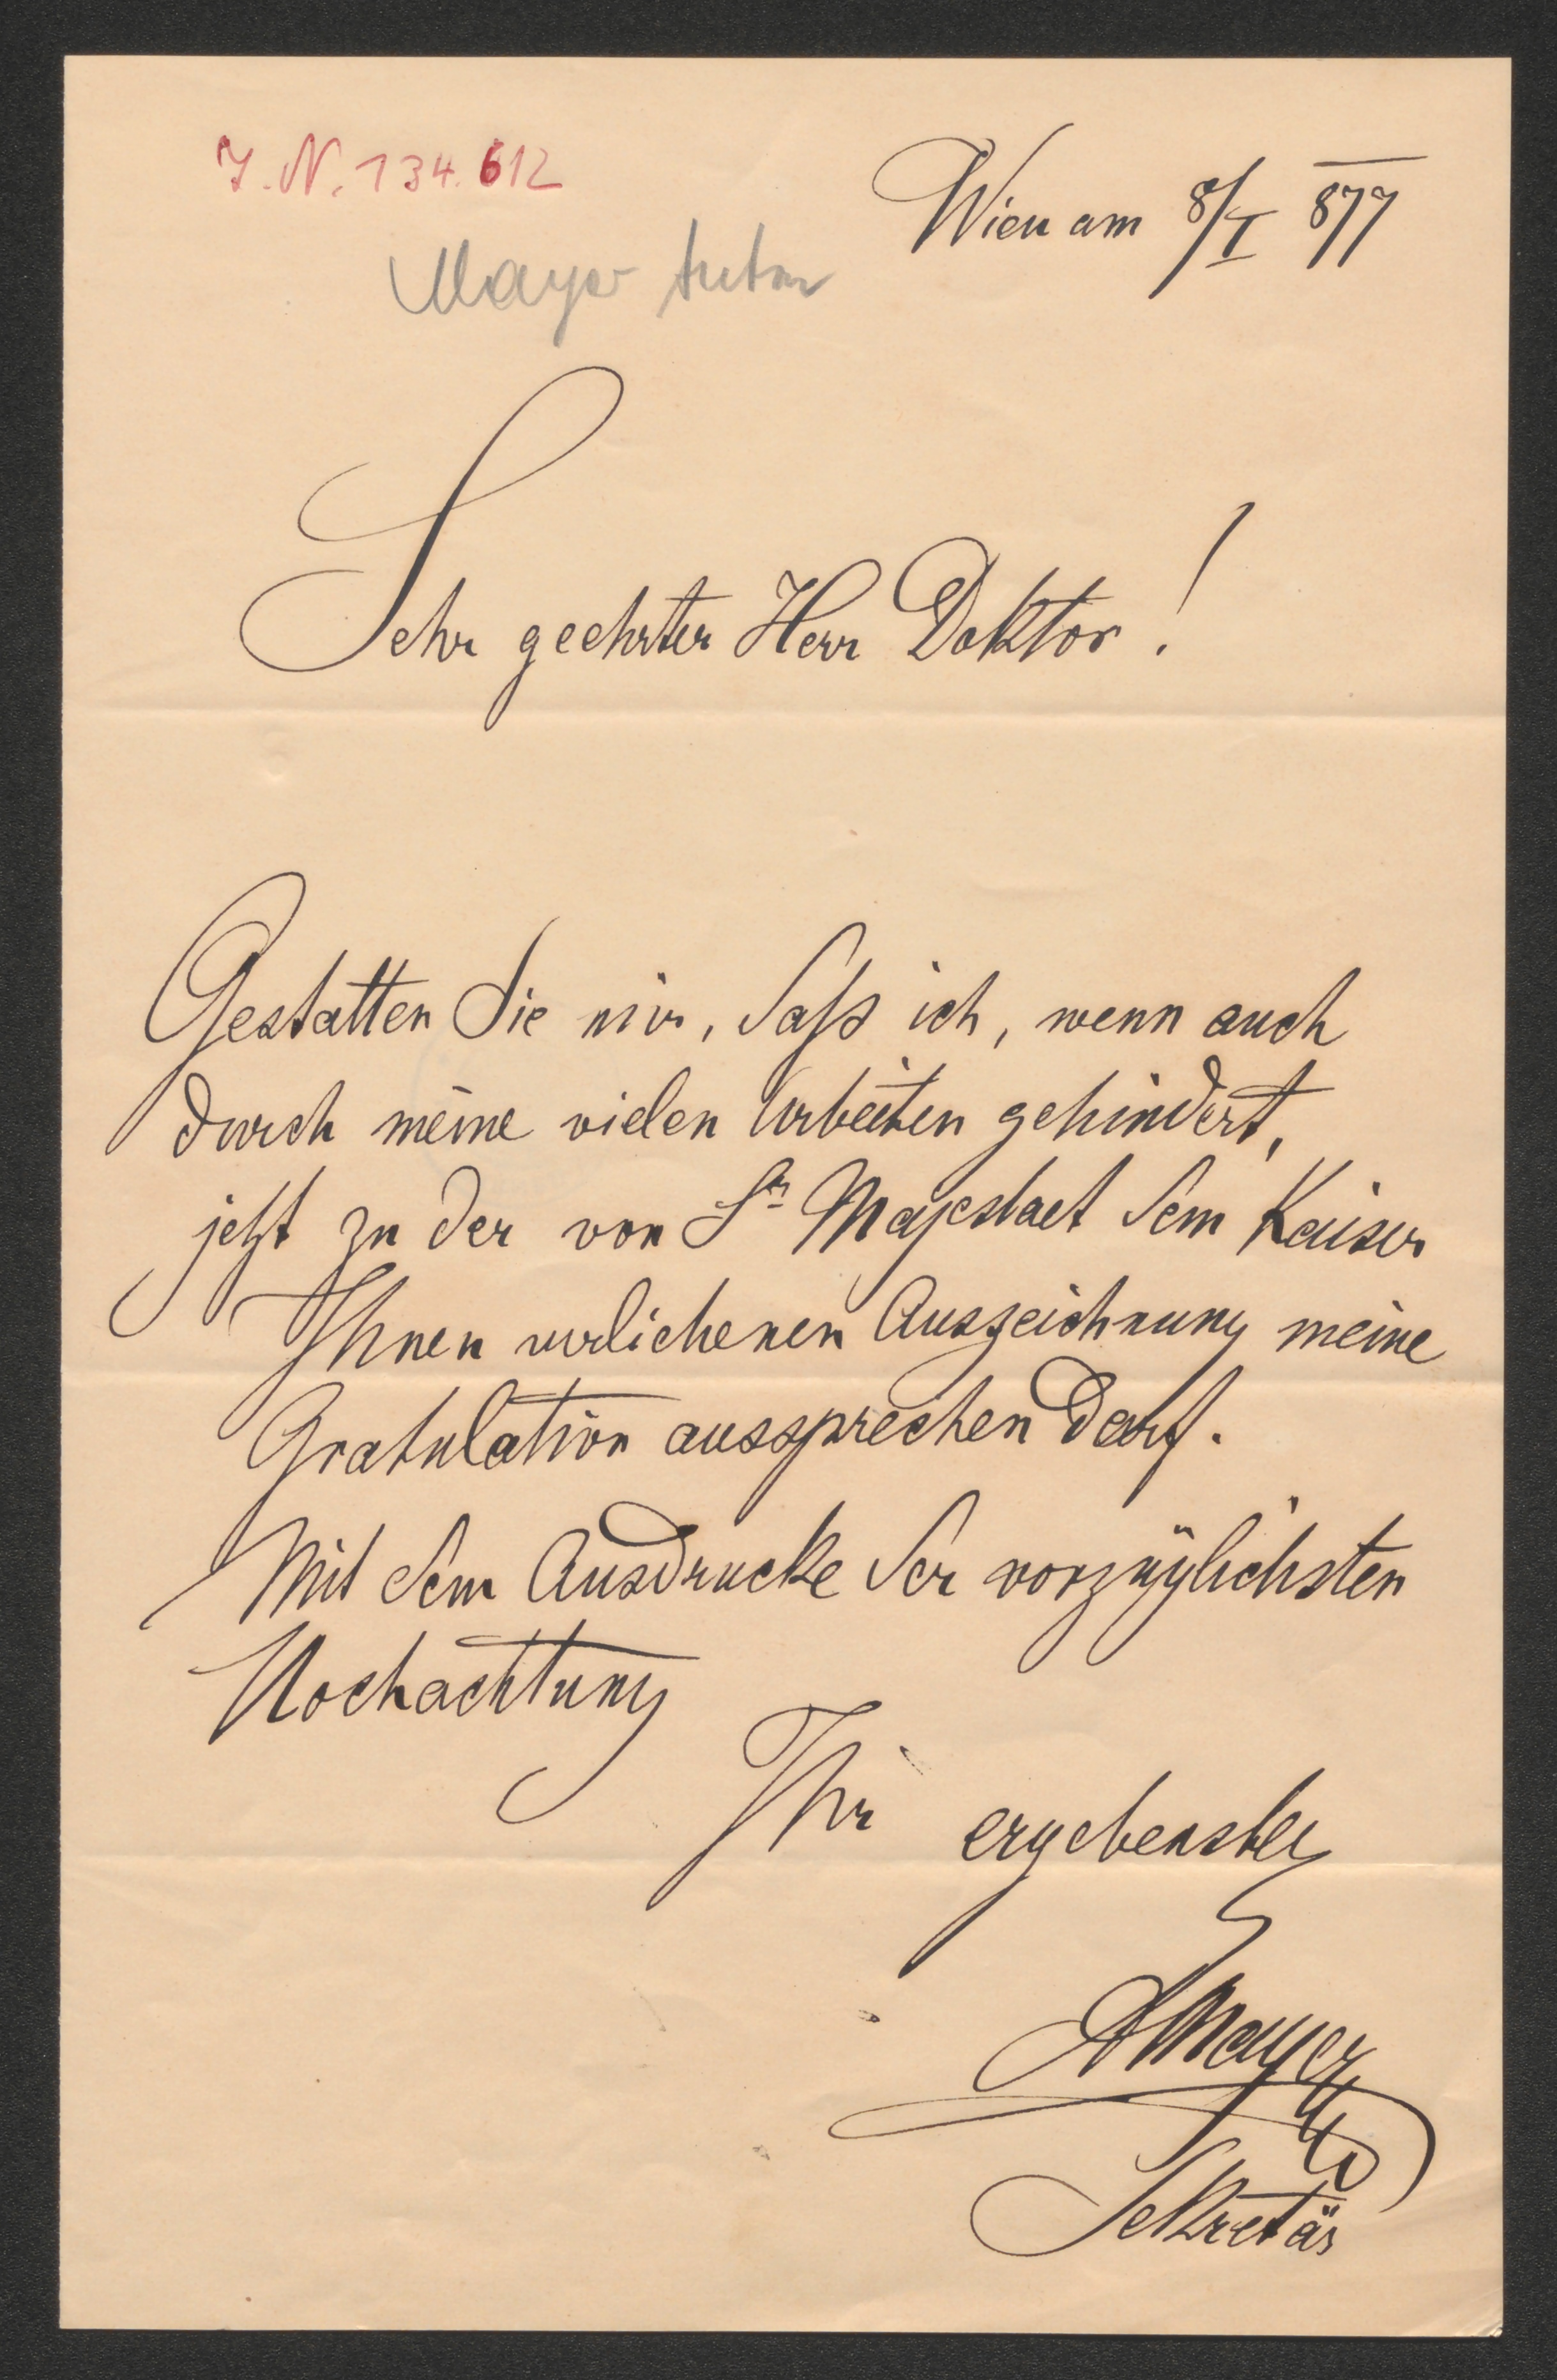 J. N. 134.612
Wien am 8/I 877
Mayer Anton
Sehr geehrter Herr Doktor!
Gestatten Sie mir, daß ich, wenn auch
durch meine vielen Arbeiten gehindert,
jetzt zu der von Sr Majestaet dem Kaiser
Ihnen verliehenen Auszeichnung meine
Gratulation aussprechen darf.
Mit dem Ausdrucke der vorzüglichsten
Hochachtung
Ihr ergebenster
AMayer
Sekretär